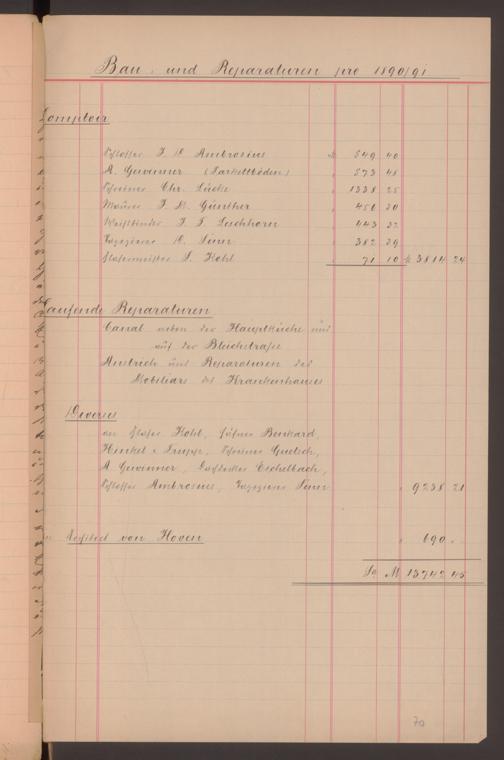 Bau- und Reparaturen pro 1890/91
Comptoir
Schlosser J. H. Ambrosius M 549 40
A. Gewinner (Parkettböden) " 573 48
Schreiner Chr. Lücke " 1338 25
Maurer J. M. Günther " 456 20
Weißbinder J. F. Leichhorn " 443 32
Tapezierer H. Sinn " 382 29
Glasermeister S. Kohl " 71 10 M 3814 24
Laufende Reparaturen
Canal neben der Hauptküche und
auf der Bleichstraße
Anstrich und Reparaturen des
Mobiliars des Krankenhauses
Diverses
an Glaser Kohl, Benkard,
Henkel & Schreiner Guetsch,
A. Gewinner, Eschelbach,
Schlosser Ambrosius, Tapezierer Sinn " 9238 21
Architect von Hoven " 690 "
Sa M 13742 45
70